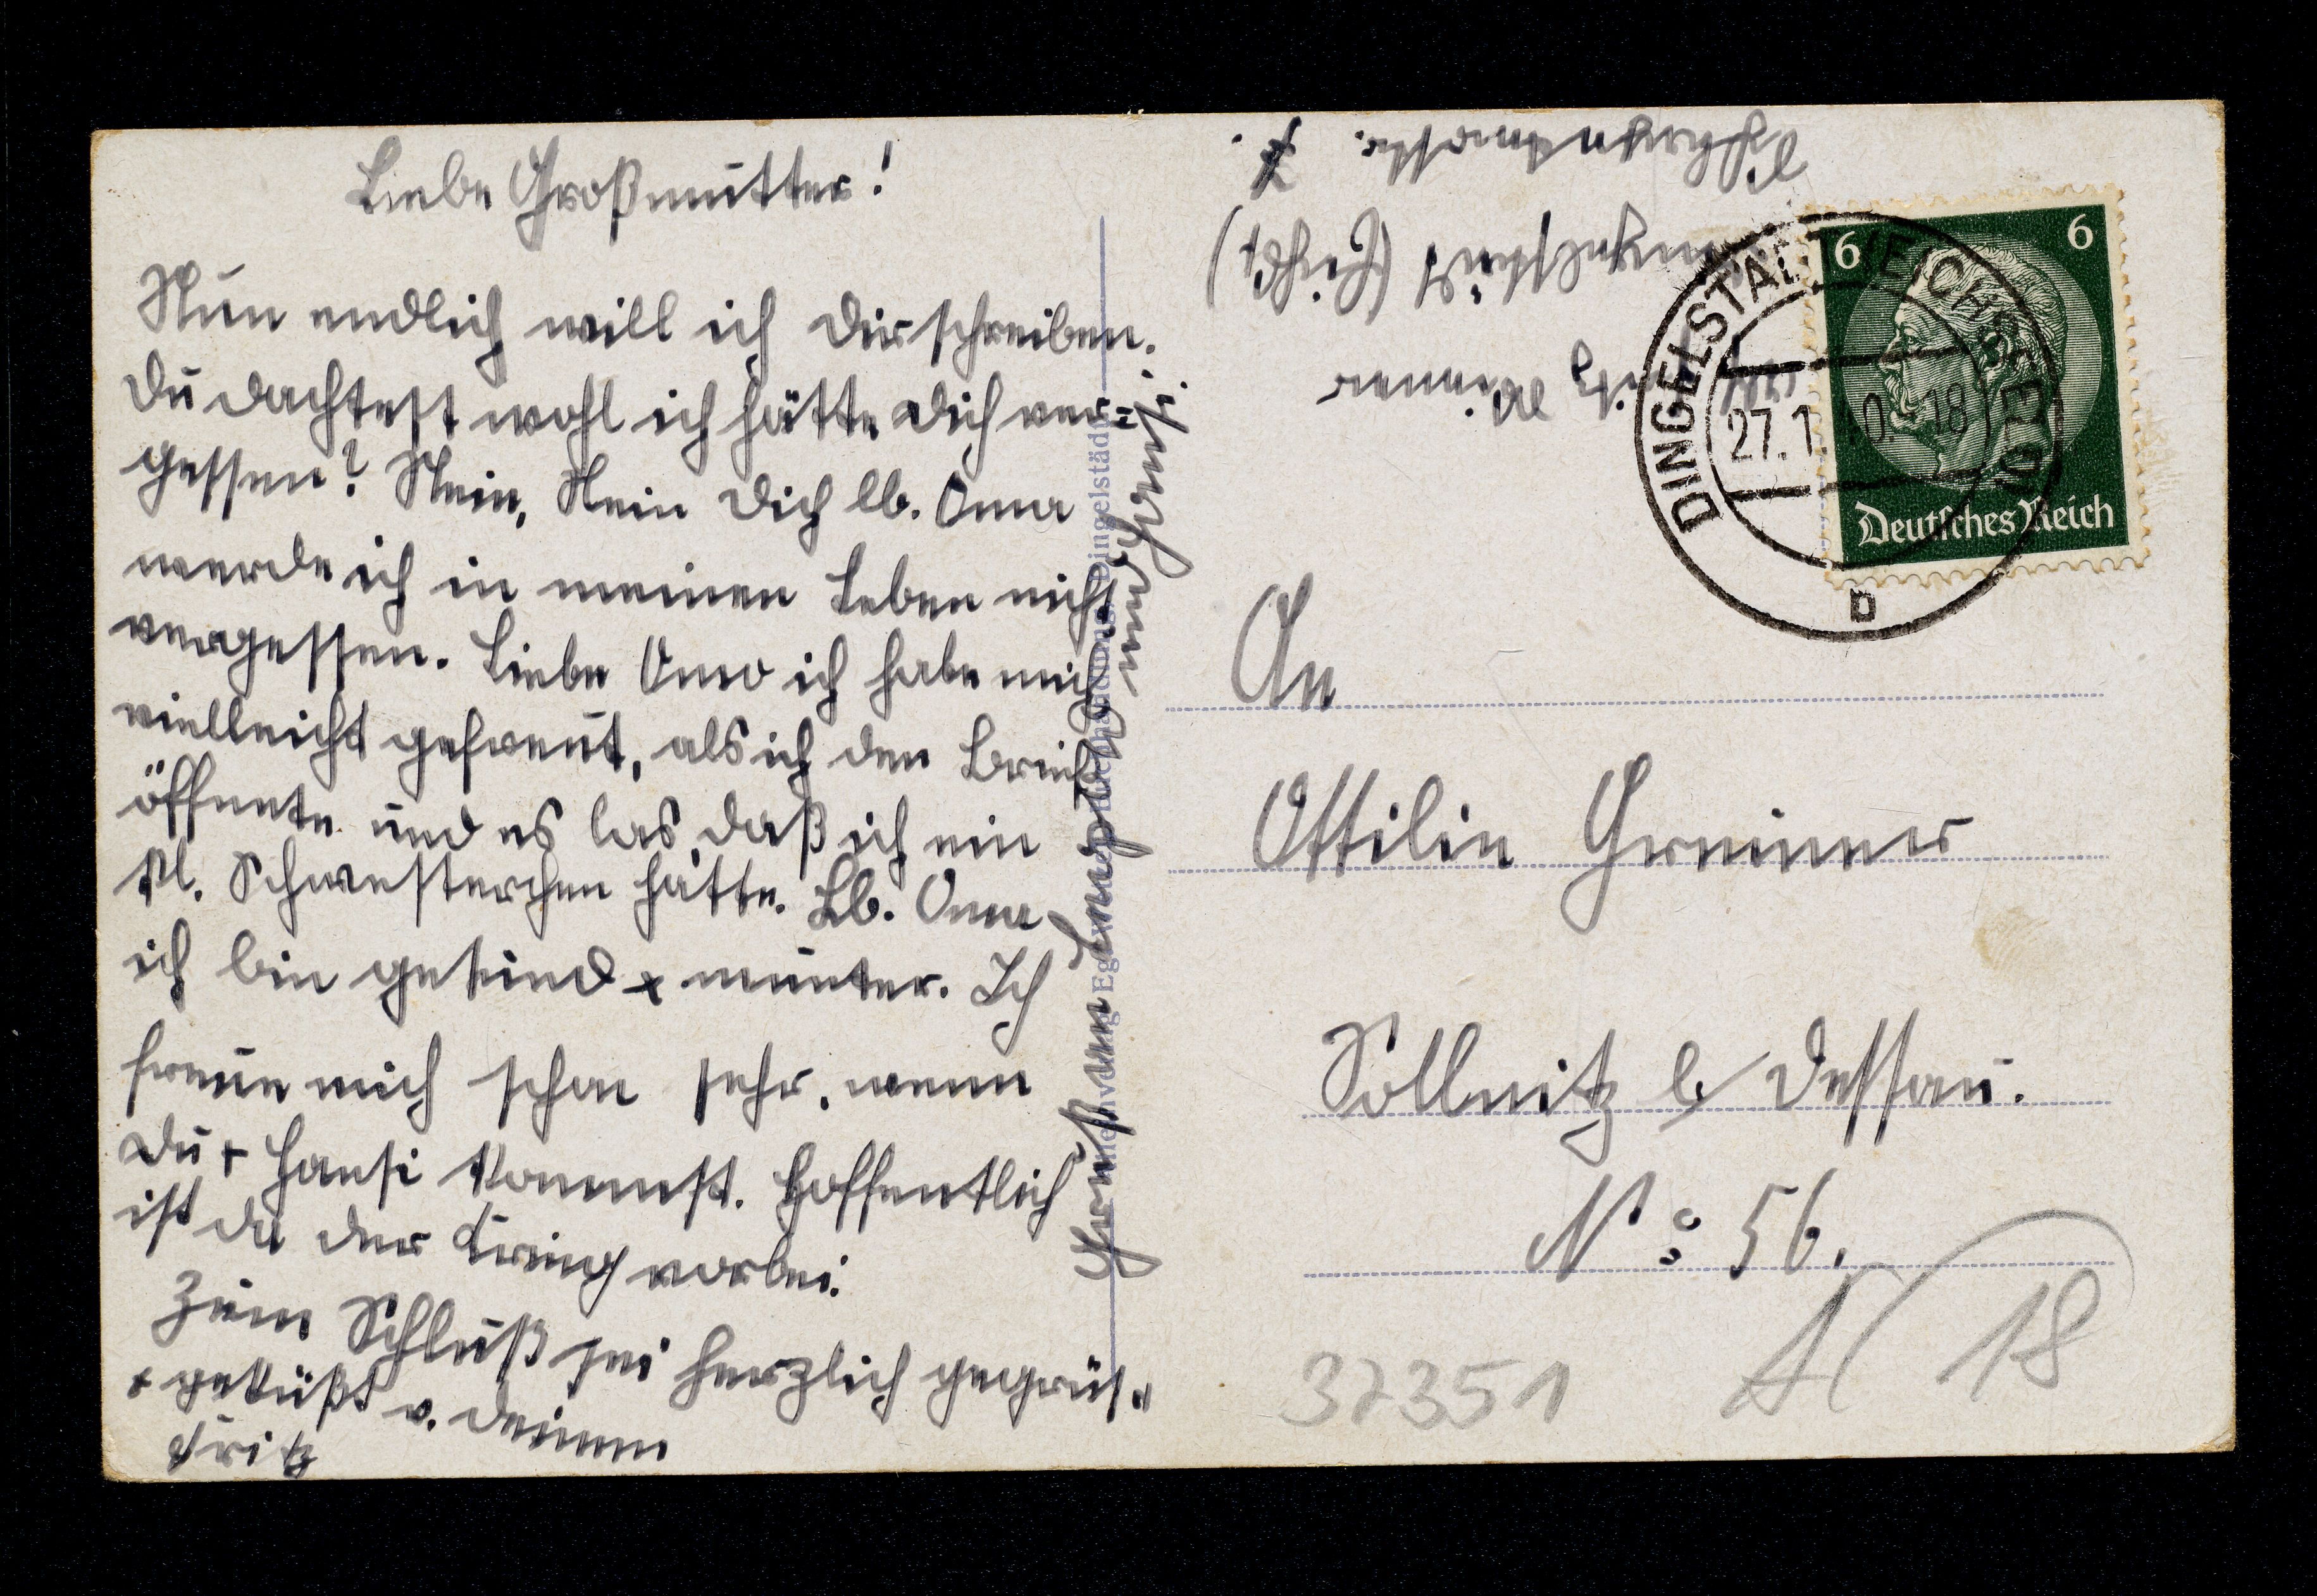 Liebe Großmutter!
Nun endlich will ich Dir schreiben.
Du dachtest wohl ich hätte Dich ver=
gessen? Nein, Nein Dich lb. Oma
werde ich in meinen Leben nicht
vergessen. Liebe Oma ich habe mich
vielleicht gefreut, als ich den Brief
öffnete und es las, daß ich ein
kl. Schwesterchen hätte. Lb. Oma
ich bin gesund + munter. Ich
freue mich schon sehr, wenn
Du + Hansi kommst. Hoffentlich
ist da der Krieg vorbei.
Zum Schluß sei herzlich gegrüß"
+ geküßt v. Deinem
Fritz
Gruß und Hansi.
Fritz
Dingelstädt (Eichsf.)
7.
DINGELSTÄDT (EICHSFELD)
27.1. 40. 18
b
6
6
Deutsches Reich
An
Ottilie Greiner
Sollnitz b/ Dessau.
No: 56.
37351
18